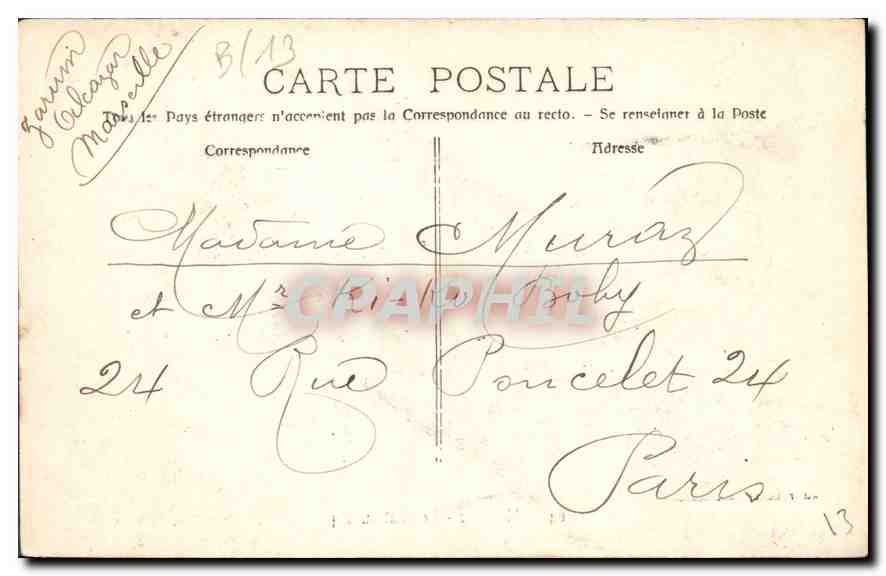 Zarum
Alcazar
Marseille
B/13
CARTE POSTALE
Tous les Pays étrangers n'acceptent pas la Correspondance au recto. - Se renseigner à la Poste
Correspondance
Adresse
Madame Muraz
et Mr Ki-Ku Boby
CPAPHIL
24 Rue Poncelet 24
Paris
13